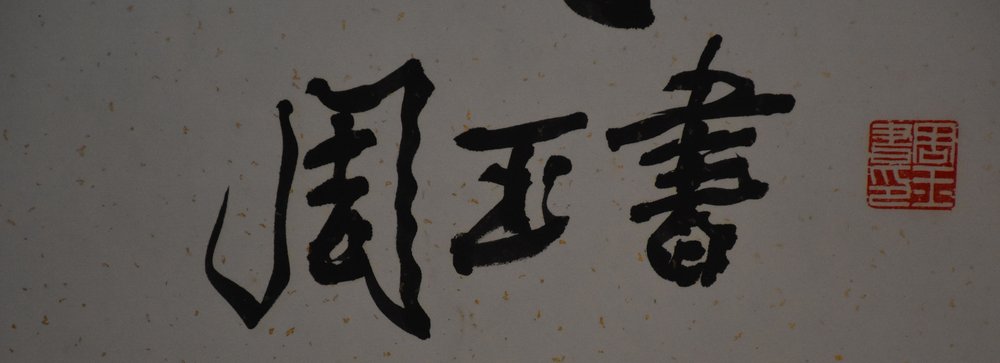 周玉書
周玉
書印